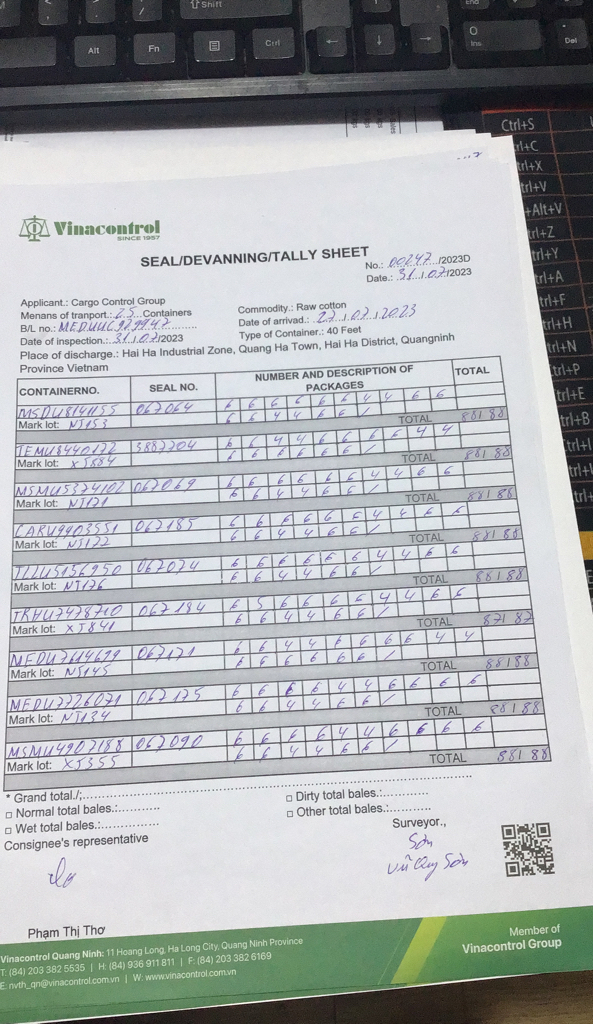 Shift
End
Alt
Fn
Ctrl
←
↓
→
0
Ins
.
Del
Ctrl+S
rl+C
trl+X
trl+V
+Alt+V
trl+Z
trl+Y
trl+A
trl+F
trl+H
trl+N
trl+P
trl+E
trl+B
Vinacontrol
SINCE 1957
SEAL/DEVANNING/TALLY SHEET
No.: 00247 /2023D
Date.: 31/07/2023
Applicant.: Cargo Control Group
Menans of tranport.: 25 Containers
Commodity.: Raw cotton
B/L no.: MEDUUC929947
Date of arrivad.: 27/07/2023
Date of inspection.: 31/07/2023
Type of Container.: 40 Feet
Place of discharge.: Hai Ha Industrial Zone, Quang Ha Town, Hai Ha District, Quangninh
Province Vietnam
CONTAINERNO. SEAL NO. NUMBER AND DESCRIPTION OF PACKAGES TOTAL
MSDU8141155 067064 6 6 6 6 6 6 4 4 6 6
6 6 4 4 6 6 /
Mark lot: NJ153 TOTAL 88 88
TEMU8440172 3887204 6 6 4 4 6 6 6 6 4 4
6 6 6 6 6 6 /
Mark lot: XJ884 TOTAL 88 88
MSMU5374102 067069 6 6 6 6 6 6 4 4 6 6
6 6 4 4 6 6 /
Mark lot: NJ171 TOTAL 88 88
CARU9403551 067185 6 6 6 6 6 6 4 4 6 6
6 6 4 4 6 6 /
Mark lot: NJ122 TOTAL 88 88
TLLU5156950 067074 6 6 6 6 6 6 4 4 6 6
6 6 4 4 6 6 /
Mark lot: NJ176 TOTAL 88 88
TRHU7478710 067184 6 5 6 6 6 6 4 4 6 6
6 6 4 4 6 6 /
Mark lot: XJ841 TOTAL 87 87
MEDU7614699 067171 6 6 4 4 6 6 6 6 4 4
6 6 6 6 6 6 /
Mark lot: NJ145 TOTAL 88 88
MEDU7726071 067175 6 6 6 6 4 4 6 6 6 6
6 6 4 4 6 6 /
Mark lot: NJ134 TOTAL 88 88
MSMU4907188 067090 6 6 6 6 4 4 6 6 6 6
6 6 4 4 6 6 /
Mark lot: XJ355 TOTAL 88 88
* Grand total./:
□ Normal total bales.:
□ Dirty total bales.:
□ Wet total bales.:
□ Other total bales.:
Consignee's representative
Surveyor.,
Sơn
Vũ Quy Sơn
Phạm Thị Thơ
Vinacontrol Quang Ninh: 11 Hoang Long, Ha Long City, Quang Ninh Province
T: (84) 203 382 5535 | H: (84) 936 911 811 | F: (84) 203 382 6169
E: nvth_qn@vinacontrol.com.vn | W: www.vinacontrol.com.vn
Member of
Vinacontrol Group